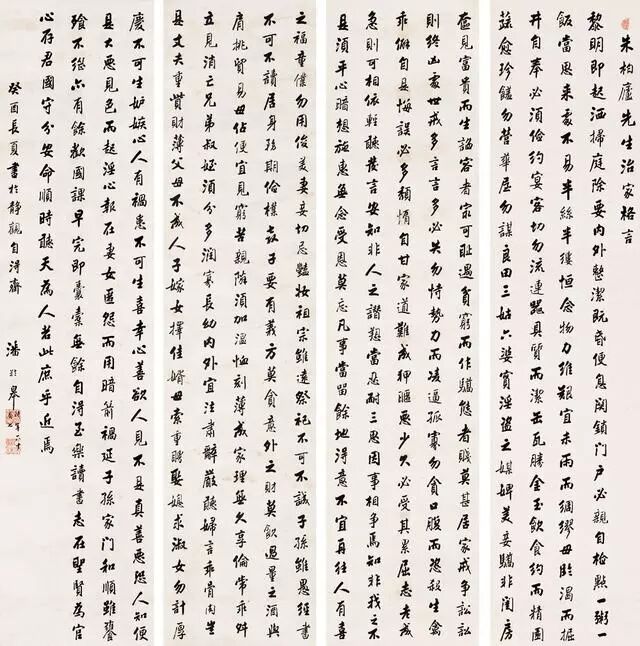 朱柏廬先生治家格言
黎明即起洒掃庭除要內外整潔既昏便息關鎖門戶必親自檢點一粥一
飯當思來處不易半絲半縷恒念物力維艱宜未雨而綢繆毋臨渴而掘
井自奉必須儉約宴客切勿流連器具質而潔缶瓦勝金玉飲食約而精園
蔬愈珍饈勿營華屋勿謀良田三姑六婆實淫盜之媒婢美妾驕非閨房
奩見富貴而生諂容者最可恥遇貧窮而作驕態者賤莫甚居家戒爭訟訟
則終凶處世戒多言言多必失勿恃勢力而凌逼孤寡勿貪口腹而恣殺生禽
乖僻自是悔誤必多頹惰自甘家道難成狎暱惡少久必受其累屈志老成
急則可相依輕聽發言安知非人之譖愬當忍耐三思因事相爭焉知非我之不
是須平心暗想施惠無念受恩莫忘凡事當留餘地得意不宜再往人有喜
之福童僕勿用俊美妻妾切忌艷妝祖宗雖遠祭祀不可不誠子孫雖愚經書
不可不讀居身務期儉樸教子要有義方莫貪意外之財莫飲過量之酒與
肩挑貿易毋佔便宜見窮苦親鄰須加溫恤刻薄成家理無久享倫常乖舛
立見消亡兄弟叔姪須分多潤寡長幼內外宜法肅辭嚴聽婦言乖骨肉豈
是丈夫重貲財薄父母不成人子嫁女擇佳婿毋索重聘娶媳求淑女勿計厚
慶不可生妒嫉心人有禍患不可生喜幸心善欲人見不是真善惡恐人知便
是大惡見色而起淫心報在妻女匿怨而用暗箭禍延子孫家門和順雖饔
飧不繼亦有餘歡國課早完即囊橐無餘自得至樂讀書志在聖賢為官
心存君國守分安命順時聽天為人若此庶乎近焉
癸酉長夏書於靜觀自得齋 潘齡皋